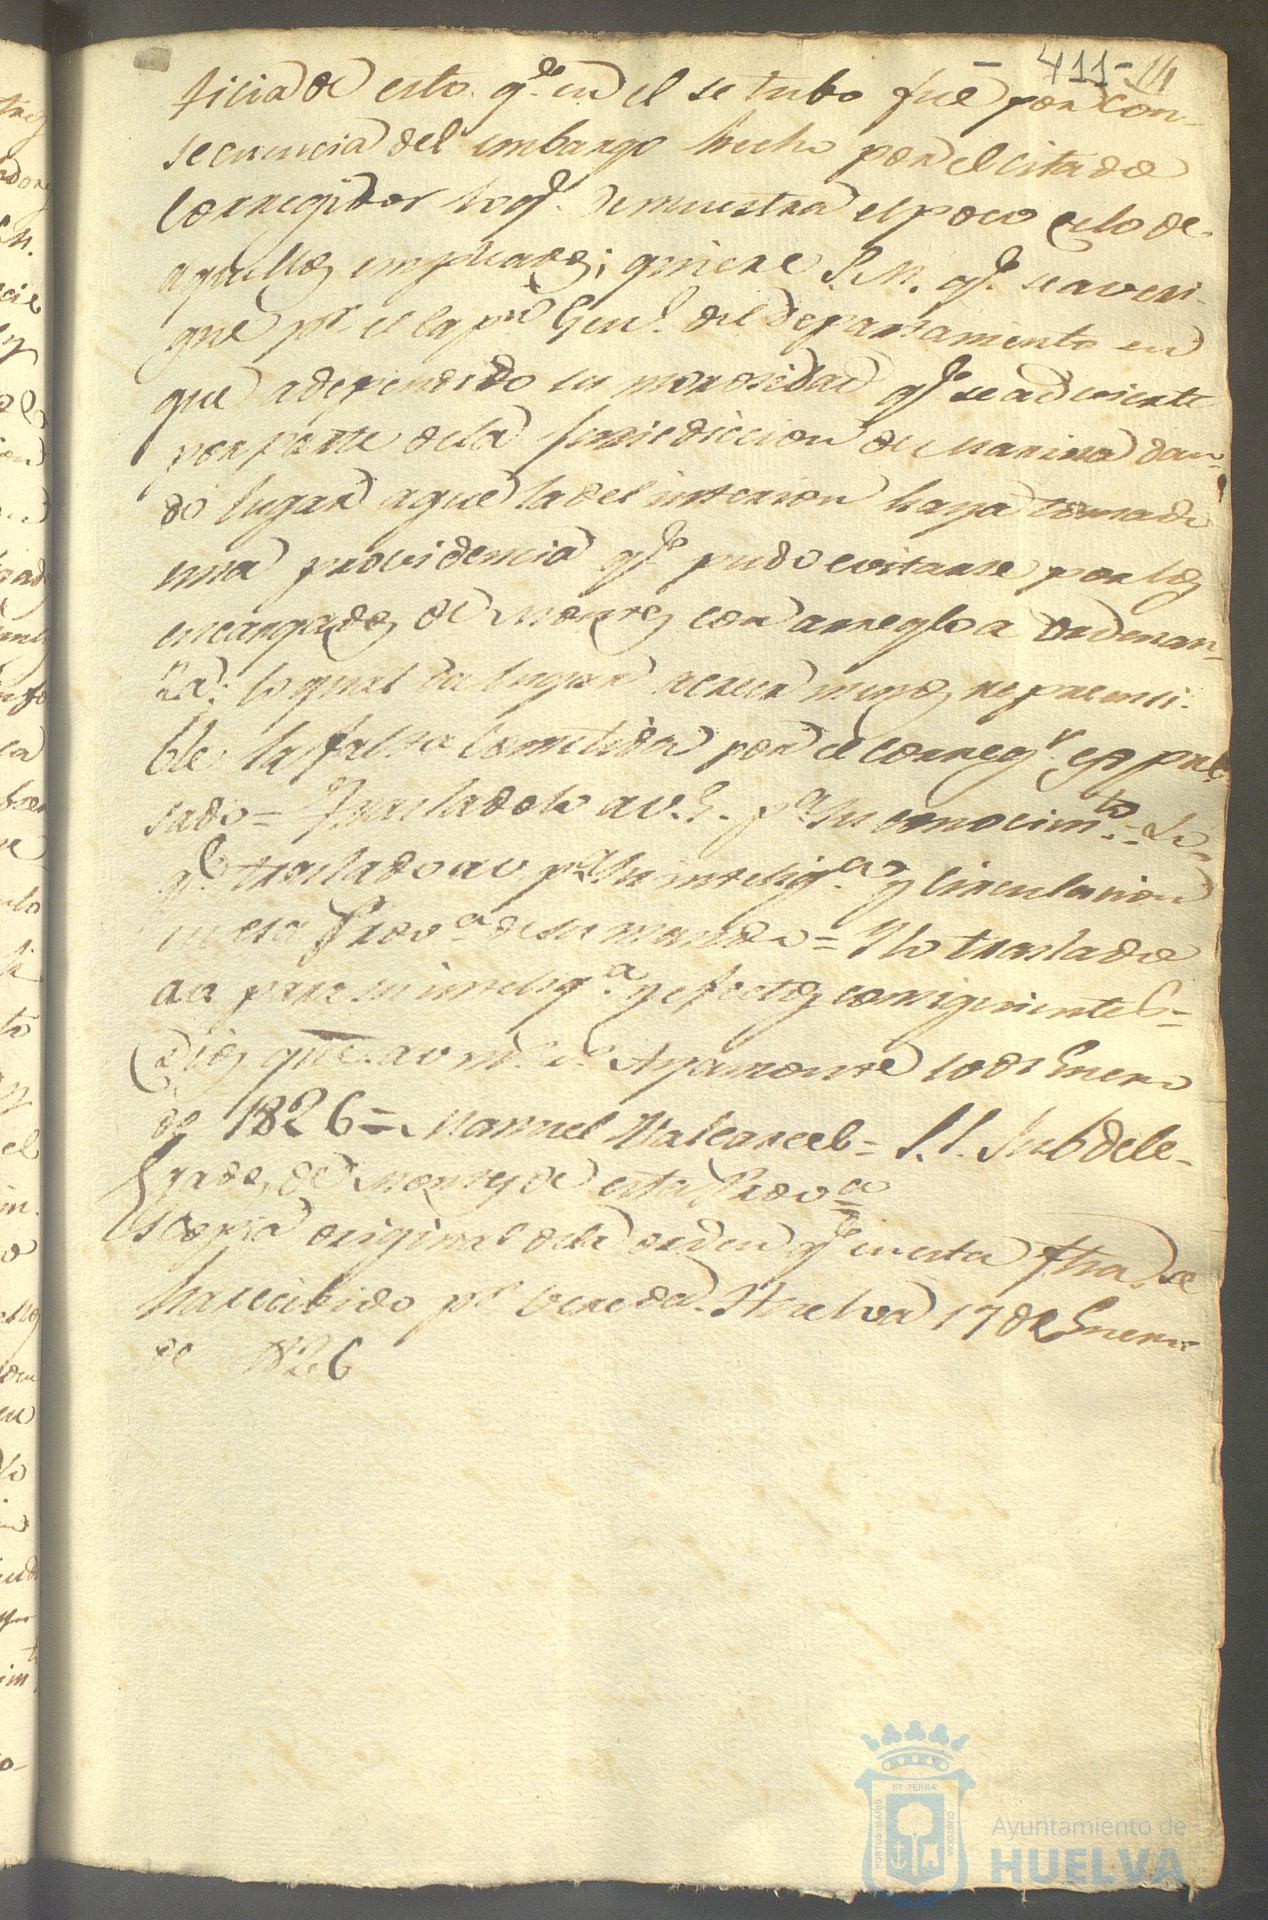 411-14
ticia de esto qe. en el se tubo fue por con-
secuencia del embargo hecho por el citado
Corregidor lo qe. demuestra el poco celo de
aquellos empleados; quiere S.M. qe. se averi-
gue pr. el Capn. Genl. del Departamento en
que a dependido la morosidad qe. se advierte
por parte de la Jurisdiccion de Marina dan-
do lugar a que la del interior haya tomado
una providencia qe. pudo evitarse por los
encargados de Montes con arreglo a Ordenan-
za; lo qual da lugar a creer menos reprensi-
ble la falta cometida por el Corregr. espre-
sado = Trasladolo a V.E. pa. su conocimto. = Lo
qe. traslado a V pa. su inteliga. y circulacion
en esa Prova. de su mando = Y lo traslado
a V para su inteliga. y efectos consiguientes =
Dios gue. a V m.s a.s Ayamonte 10 de Enero
de 1826 = Manuel Valcarcel = S.S. Subdele-
gados de Montes de esta Prova.
Es copia original de la orden qe. en esta fha. se
ha recibido pr. vereda. Huelva 17 de Enero
de 1826
PORTUS MARIS
ET TERRÆ
CUSTODIA
Ayuntamiento de
HUELVA